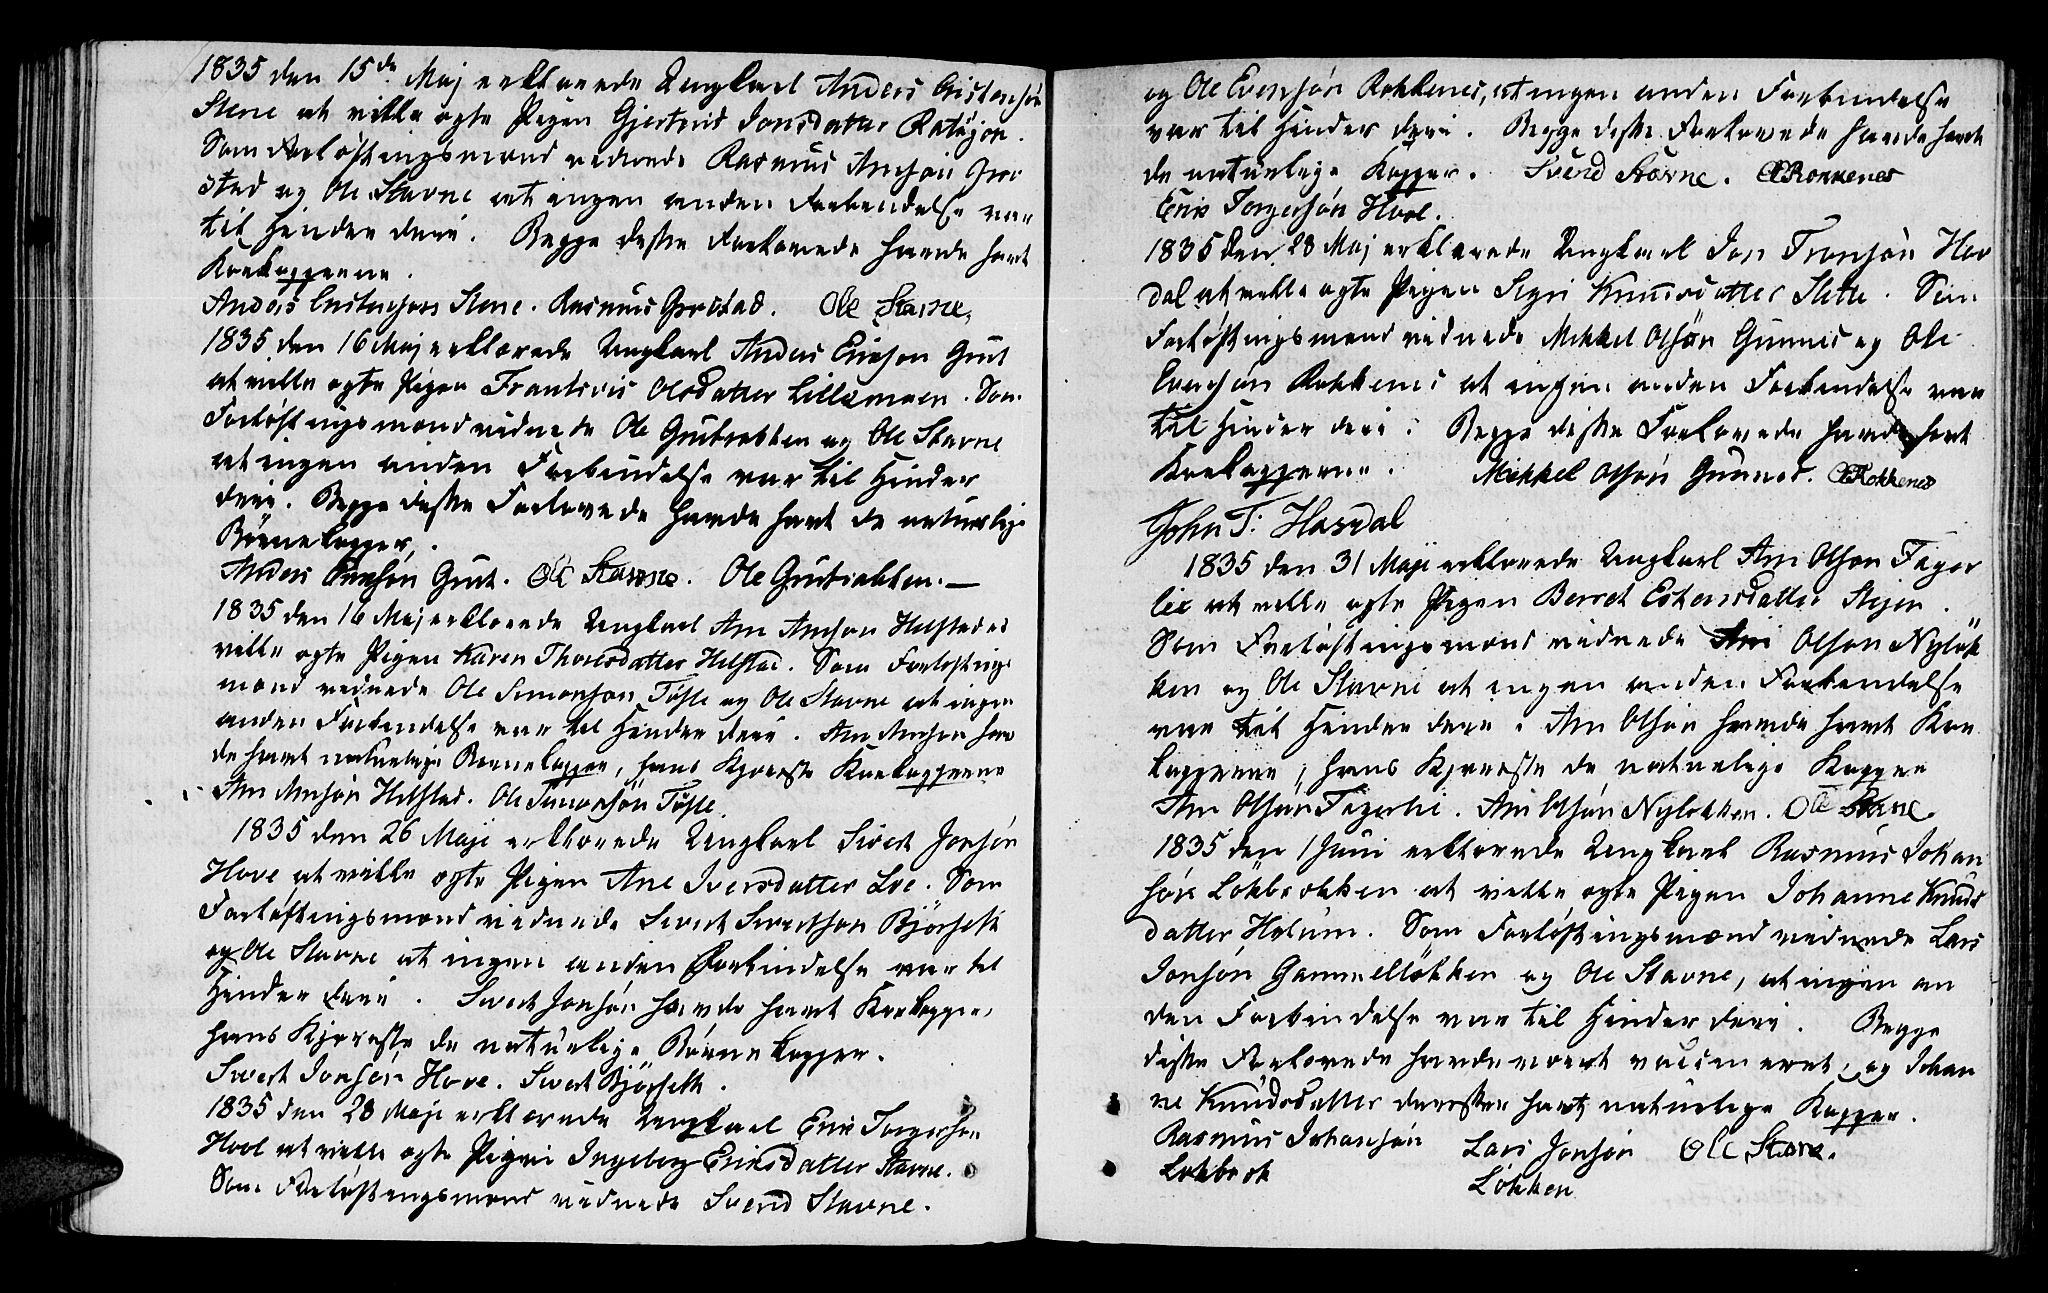 1835 den 15de Maj erklærede Ungkarl Anders Cristensøn
Stene at ville ægte Pigen Gjertrud Jonsdatter Ratsjon.
Som Forløftningsmænd vidnede Rasmus Arnsøn Gro
stad og Ole Stavne at ingen anden Forbindelse var
til Hinder deri. Begge disse Forlovede havde havt
Kokopperne.
Anders Cristensøn Stene. Rasmus Grostad. Ole Stavne.
1835 den 16 Maj erklærede Ungkarl Anders Ericson Grut
at ville ægte Pigen Frantsvis Olsdatter Lillemoen. Som
Forløftningsmænd vidnede Ole Grutsetten og Ole Stavne
at ingen anden Forbindelse var til Hinder
deri. Begge disse Forlovede havde havt de naturlige
Børnekopper.
Anders Ericsøn Grut. Ole Stavne. Ole Grutsetten. —
1835 den 16 Maj erklærede Ungkarl Arn Arnson Helstad at
ville ægte Pigen Karen Thoresdatter Helstad. Som Forløftnings
mænd vidnede Ole Simonson Tøfte og Ole Stavne at ingen
anden Forbindelse var til Hinder deri. Arn Arnson hav
de havt naturlige Børnekopper, hans Kjæreste Kokopperne
Arn Arnsøn Helstad. Ole Simonsøn Tøfte.
1835 den 26 Maji erklærede Ungkarl Sivert Jonsøn
Hove at ville ægte Pigen Ane Iversdatter Lve. Som
Forløftningsmænd vidnede Sivert Sivertson Bjørset
og Ole Stavne at ingen anden Forbindelse var til
Hinder deri. Sivert Jonsøn havde havt Kokopper,
hans Kjæreste de naturlige Børnekopper.
Sivert Jonsøn Hove. Sivert Bjørset.
1835 den 28 Maji erklærede Ungkarl Eric Torgersøn
Hool at ville ægte Pigen Ingeborg Ericsdatter Stavne.
Som Forløftningsmænd vidnede Svend Stavne.
og Ole Evensøn Rokkenes, at ingen anden Forbindelse
var til Hinder deri. Begge disse Forlovede havde havt
de naturlige Kopper. Svend Stavne. OERokkenes
Eric Torgersøn Hool.
1835 den 28 Maj erklærede Ungkarl Jon Tronsøn Has
dal at ville ægte Pigen Sigri Knudsdatter Slette. Som
Forløftningsmænd vidnede Mikkel Olsøn Gunnes og Ole
Evensøn Rokkenes at ingen anden Forbindelse var
til Hinder deri. Begge disse Forlovede havde havt
Kokopperne. Mikkel Olsøn Gunnes. OERokkenes
John T: Hasdal
1835 den 31 Maji erklærede Ungkarl Arn Olson Fager
lie at ville ægte Pigen Berret Estensdatter Stejen.
Som Forløftningsmænd vidnede Arn Olson Nyløk
ken og Ole Stavne at ingen anden Forbindelse
var til Hinder deri. Arn Olsøn havde havt Ko
kopperne, hans Kjæreste de naturlige Kopper
Arn Olsøn Fagerlie. Arn Olsøn Nyløkken. Ole Stavne.
1835 den 1 Juni erklærede Ungkarl Rasmus Johan
søn Løkbrokken at ville ægte Pigen Johanne Knuds
datter Holum. Som Forløftningsmænd vidnede Lars
Jonsøn Gammelløkken og Ole Stavne, at ingen an
den Forbindelse var til Hinder deri. Begge
disse Forlovede havde været vaccineret, og Johan
ne Knudsdatter desforuden havt naturlige Kopper.
Rasmus Johansøn Lars Jonsøn Ole Stavne.
Løkbrok Løkken